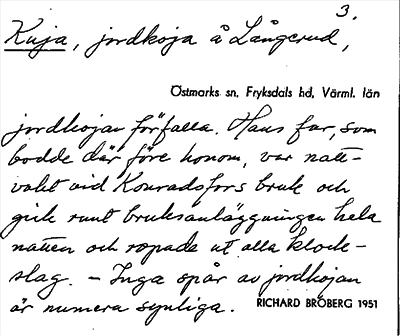 3.
Kuja, jordkoja å Långerud,
Östmarks sn, Fryksdals hd, Värml. län
jordkojan förfalla. Hans far, som
bodde där före honom, var natt-
vakt vid Konradsfors bruk och
gick runt bruksanläggningen hela
natten och ropade ut alla klock-
slag. – Inga spår av jordkojan
är numera synliga.
RICHARD BROBERG 1951